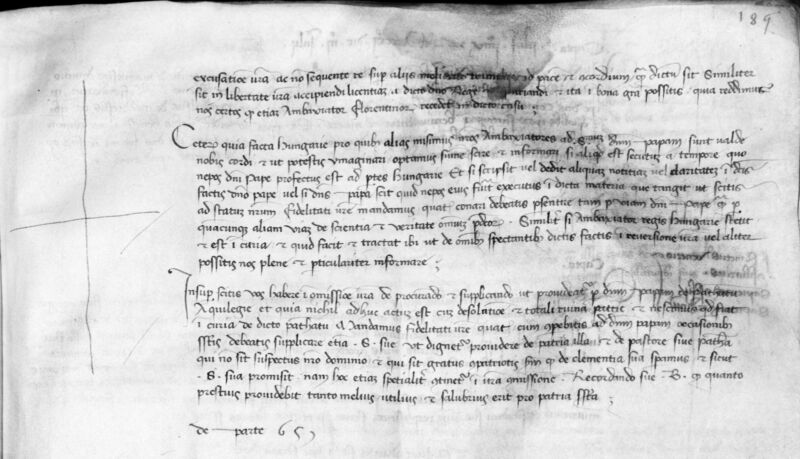 189
excusatiõe vrã ac nõ sequente re sup alijs ad pacẽ & cõcordium, dictũ sit Similiter
sit in libertate vrã accipiendi licentiaʒ a dicto dño Rege & ita i bona grã possitis, quia reddimur
nos certos q etiaʒ Ambaxiator Florentinor recedet in dicto casu ;
Ceterꝝ quia facta Hungarie pro quibꝰ alias misimus nros Ambaxiatores ad dñm papam sunt valde
nobis cordi & ut potestis ymaginari optamus sũme scire & informari si aliqd est secutuʒ a tempore quo
nepos dñi Pape profectus est ad ptes Hungarie Et si scripsit vel dedit aliquaʒ notitiaʒ vel claritateʒ i dc̃is
factis dño pape vel si dñs papa scit quid nepos eius fuit executus i dicta materia que tangit ut scitis
ad statuʒ nrum Fidelitati vrẽ mandamus quat conari debeatis psentire tam p viam dñi Pape q p
quacunqʒ aliam viaʒ de scientia & veritate omniuʒ pdcõr . Similit si Ambaxiator regis Hungarie stetit
& est i curia & quid facit & tractat ibi ut de omibꝰ spectantibꝰ dictis factis i reversione vrã vel aliter
possitis nos plene & pticulariter informare ;
Insup scitis vos habere i cõmissiõe vrã de procurãdo & supplicando ut provideat p dñm Papam de Pathatu
Aquilegie et quia nichil adhuc actuʒ est cuʒ desolatiõe & totali ruina prtie & nescimus qd fiat
i curia de dicto pathatu Mandamus fidelitati vrẽ quat cum ad dñm papam occasionibꝰ
sstis debeatis supplicare etiã . S . sue ut dignet providere de patria illa & de pastore sive patharcha
qui nõ sit suspectus nrõ dominio & qui sit gratus cõpatriotis sm q de clementia sua spamus & sicut
. S . sua promisit . nam hoc etiaʒ spetialit cõtinet i vrã cõmissione . Recordando sue . B . q quanto
prestius providebit tanto melius, utilius & salubrius erit pro patria sstã ;
de parte 65